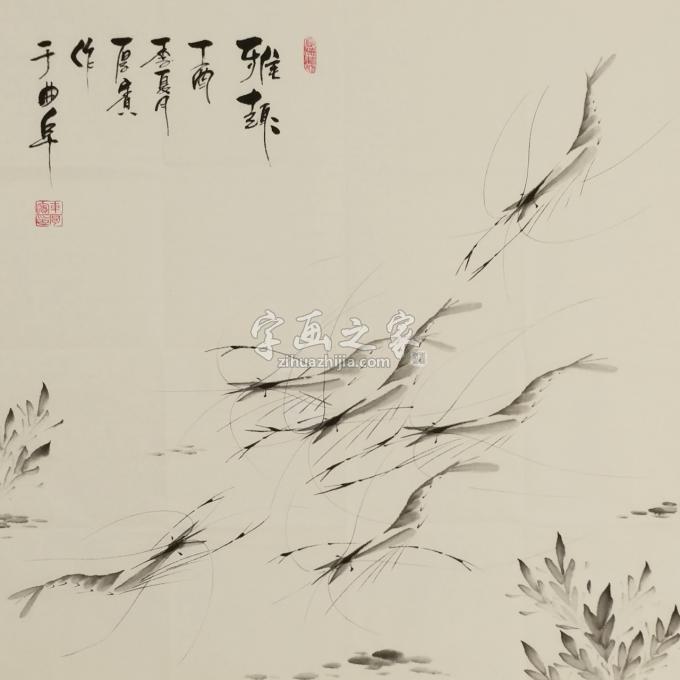 雅趣
丁酉
季夏月
厚宾
作
于曲阜
字画之家
zihuazhijia.com